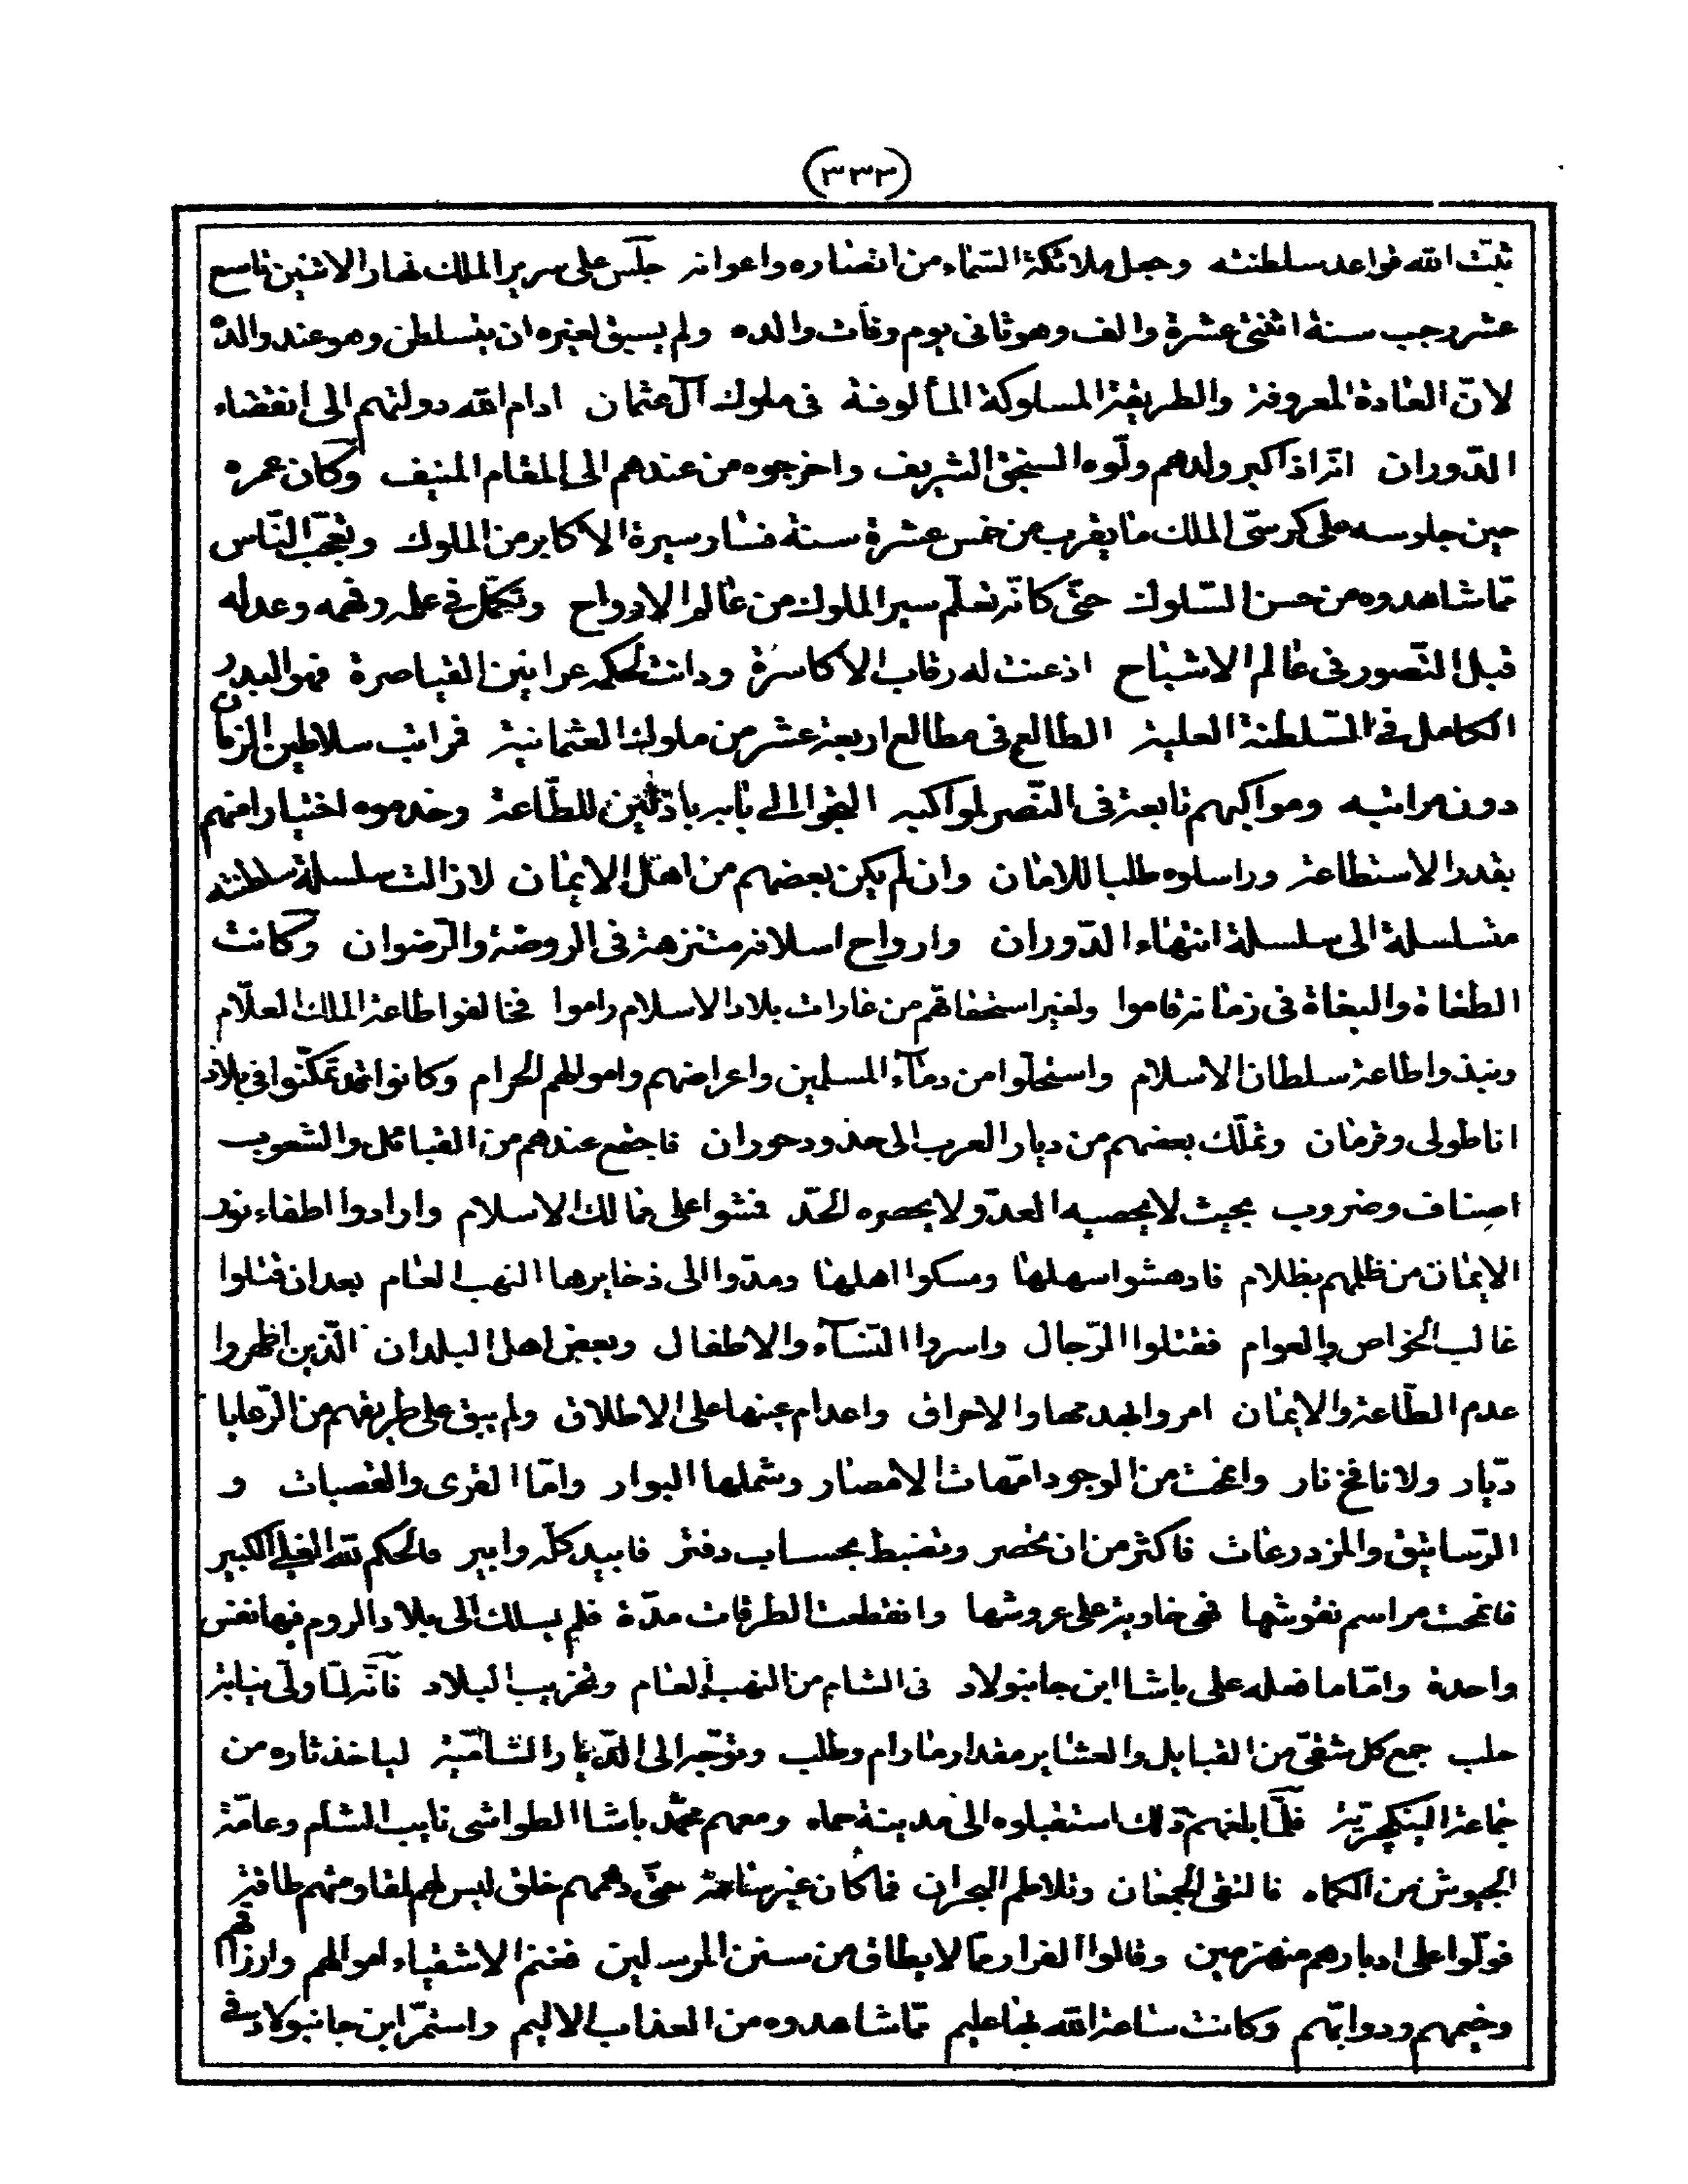 (٣٣٣)
ثبت الله قواعد سلطنته وجعل ملائكة السماء من انصاره واعوانه جلس على سرير الملك نهار الاثنين تاسع
عشر رجب سنة اثنتى عشرة والف وهو ثانى يوم وفات والده ولم يسبق لغيره ان يتسلطن وهو عند والده
لانّ العادة المعروفة والطريقة المسلوكة المألوفة فى ملوك آل عثمان ادام الله دولتهم الى انقضاء
الدّوران انّه اذا كبر ولدهم ولّوه السنجق الشريف واخرجوه من عندهم الى المقام المنيف وكان عمره
حين جلوسه على كرسىّ الملك ما يقرب من خمس عشرة سنة فسار سيرة الاكابر من الملوك وتعجّب النّاس
ممّا شاهدوه من حسن السّلوك حتّى كانّه تعلّم سير الملوك من عالم الارواح وتكمّل فى علمه وفهمه وعدله
قبل التّصور فى عالم الاشباح اذعنت له رقاب الاكاسرة ودانت لحكمه عرانين القياصرة فهو البدر
الكامل فى السّلطنة العلية الطالع فى مطالع اربعة عشر من ملوك العثمانية فراتب سلاطين الزمان
دون مراتبه ومواكبهم تابعة فى النّصر لمواكبه التجؤا الى بابه باذلين للطّاعة وخدموه اختيارا منهم
بقدر الاستطاعة وراسلوه طلبا للامان وان لم يكن بعضهم من اهل الايمان لازالت سلسلة سلطنته
متسلسلة الى سلسلة انتهاء الدّوران وارواح اسلافه متنزهة فى الروضة والرّضوان وكانت
الطغاة والبغاة فى زمانه قاموا ولغير استحقاقهم من غارات بلاد الاسلام راموا فخالفوا طاعة الملك العلّام
ونبذوا طاعة سلطان الاسلام واستحلّوا من دمآء المسلمين واعراضهم واموالهم الحرام وكانوا قد تمكّنوا فى بلاد
اناطولى وقرمان وتملّك بعضهم من ديار العرب الى حدود حوران فاجتمع عندهم من القبائل والشعوب
اصناف وضروب بحيث لا يحصيه العدّ ولا يحصره الحدّ فمشوا على ممالك الاسلام وارادوا اطفاء نور
الايمان من ظلمهم بظلام فادهشوا سهلها ومسكوا اهلها ومدّوا الى ذخايرها النهب العام بعد ان قتلوا
غالب الخواص والعوام فقتلوا الرّجال واسروا النّسآء والاطفال وبعض اهل البلدان الّذين اظهروا
عدم الطّاعة والايمان امروا بهدمها والاحراق واعدام عينها على الاطلاق ولم يبق على طريقهم من الرّعايا
ديّار ولا نافخ نار وانمحت من الوجود امّهات الامصار وشملها البوار وامّا القرى والقصبات و
الرّساتيق والمزدرعات فاكثر من ان تحصر وتضبط بحساب دفتر فابيد كلّه وابير فالحكم لله العلى الكبير
فانمحت مراسم نقوشها فهى خاوية على عروشها وانقطعت الطرقات مدّة فلم يسلك الى بلاد الروم فيها نفس
واحدة وامّا ما فعله على باشا ابن جانبولاد فى الشام من النهب العام وتخريب البلاد فانّه لمّا ولّى نيابة
حلب جمع كل شقىّ من القبايل والعشاير مقدار ما رام وطلب وتوجّه الى الدّيار الشاميّة لياخذ ثاره من
جماعة الينكچريّة فلمّا بلغهم ذلك استقبلوه الى مدينة حماه ومعهم محمّد باشا الطواشى نايب الشام وعامّة
الجيوش من الكماه فالتقى الجمعان وتلاطم البحران فما كان غير ساعة حتّى دهمهم خلق ليس لهم لمقاومتهم طاقة
فولّوا على ادبارهم منهزمين وقالوا الفرار ممّا لا يطاق من سنن المرسلين فغنم الاشقياء اموالهم وارزاقهم
وخيمهم ودوابّهم وكانت ساعة الله بها عليم ممّا شاهدوه من العذاب الاليم واستمرّ ابن جانبولاد فى